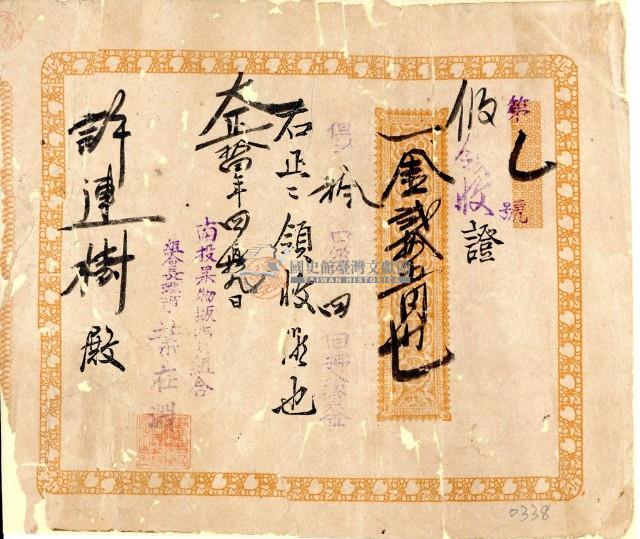 第乙號
假領收證
一金貳拾五円也
拾 口 四 回
右正ニ領收候也
大正拾年四月 日
南投果物販賣組合
組合長 葉在淵
許連樹 殿
國史館臺灣文獻館
TAIWAN HISTORICA
0338